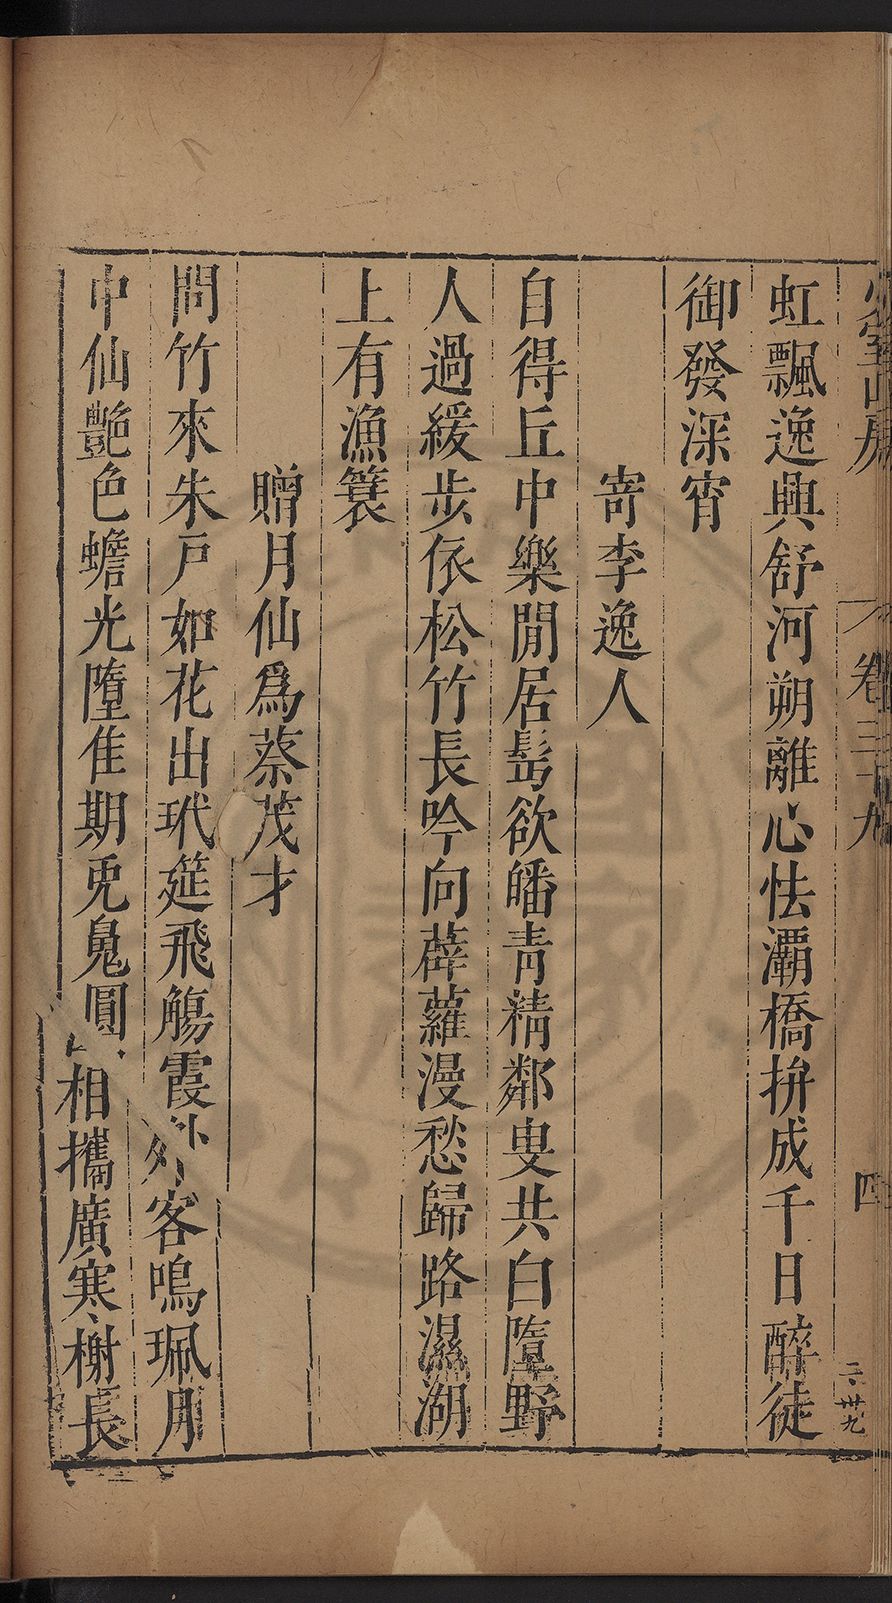 少室山房
卷三十九
四
二卅九
虹飄逸興舒河朔離心怯灞橋拚成千日醉徒
御發深宵
寄李逸人
自得丘中樂閒居髩欲皤青精鄰叟共白墮野
人過緩步依松竹長吟向薜蘿漫愁歸路濕湖
上有漁簑
贈月仙爲蔡茂才
問竹來朱戸如花出玳筵飛觴霞外客鳴珮月
中仙艷色蟾光墮佳期兎魄圓相攜廣寒榭長